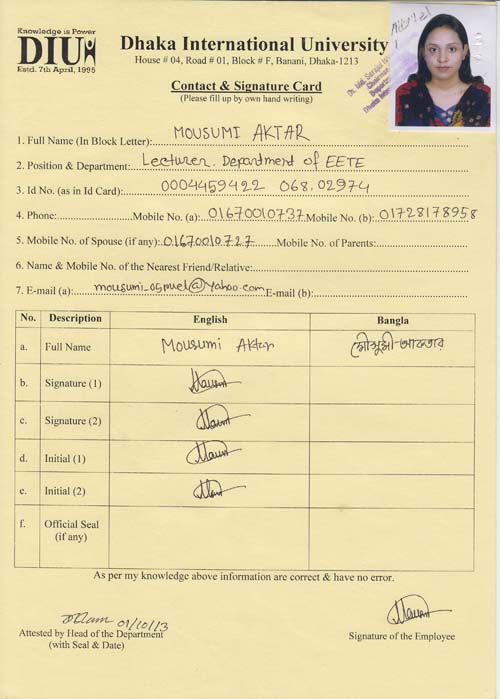 Knowledge is Power
DIU
Estd. 7th April, 1995
Dhaka International University
House # 04, Road # 01, Block # F, Banani, Dhaka-1213
Contact & Signature Card
(Please fill up by own hand writing)
1. Full Name (In Block Letter): MOUSUMI AKTAR
2. Position & Department: Lecturer. Department of EETE
3. Id No. (as in Id Card): 0004459422 068.02974
4. Phone: Mobile No. (a): 01670010737 Mobile No. (b): 01728178958
5. Mobile No. of Spouse (if any): 01670010727 Mobile No. of Parents:
6. Name & Mobile No. of the Nearest Friend/Relative:
7. E-mail (a): mousumi_05muet@yahoo.com E-mail (b):
No. Description English Bangla
a. Full Name Mousumi Aktar মৌসুমী-আকতার
b. Signature (1)
c. Signature (2)
d. Initial (1)
e. Initial (2)
f. Official Seal (if any)
As per my knowledge above information are correct & have no error.
01/10/13
Attested by Head of the Department Signature of the Employee
(with Seal & Date)